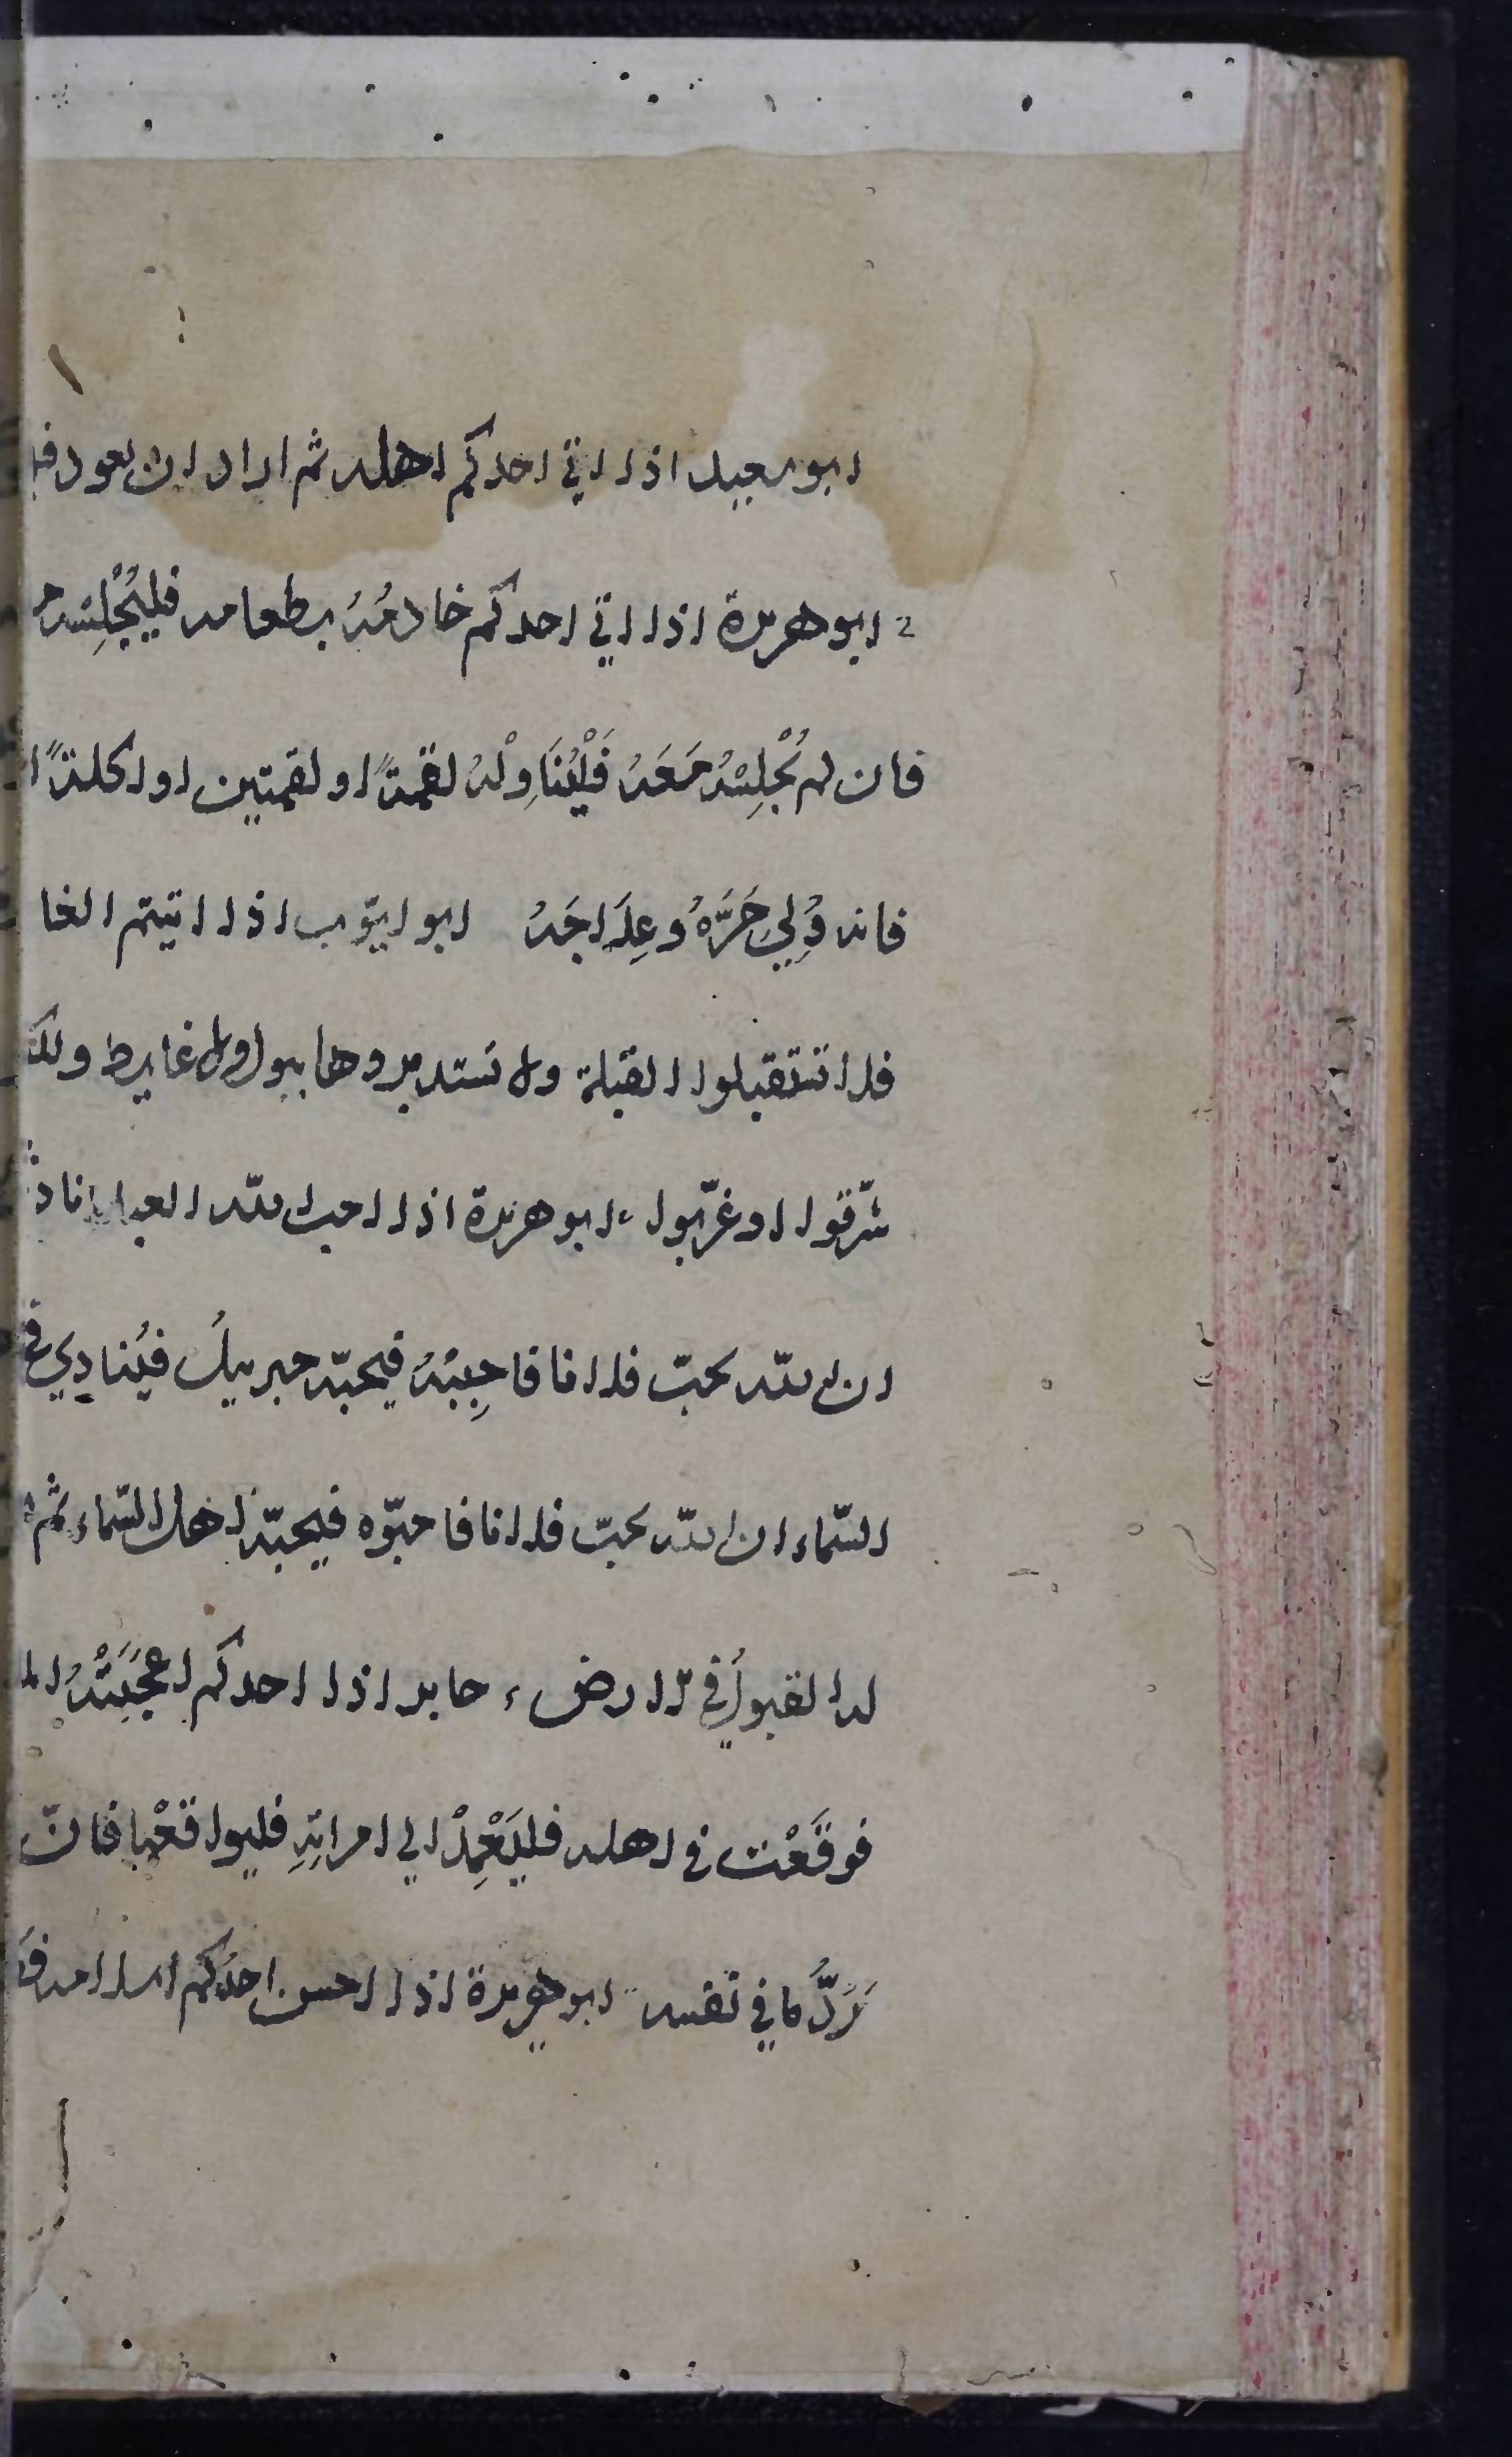 ابو سعيد اذا اتي احدكم اهله ثم اراد ان يعود
ابو هريرة اذا اتي احدكم خادمُهُ بطعامه فليُجْلِسْه
فان لم يُجْلِسْهُ مَعَهُ فَلْيُنَاوِلْهُ لقمةً او لقمتين او اكلةً
فانه وُلِيَ حَرَّهُ وعِلَاجَهُ ابو ايّوب اذا اتيتم الغا
فلا تستقبلوا القبلة ولا تستدبروها ببول ولا غايط ولكن
شرّقوا او غرّبوا ابو هريرة اذا احب الله العبد نادي
ان الله يحبّ فلانا فاحِببْهُ فيحبّه جبرييلُ فيُنادِي في
السّماء ان الله يحبّ فلانا فاحبّوه فيحبّه اهل السّماء ثم
له القبولُ في الارض جابر اذا احدكم اعجَبَتْهُ
فوقَعْت في اهله فليَعْمِدْ الي امراتِهِ فليواقعْها فانّ
يَرُدُّ ما في نفسه ابو هريرة اذا احسن احدُكم اسلامه